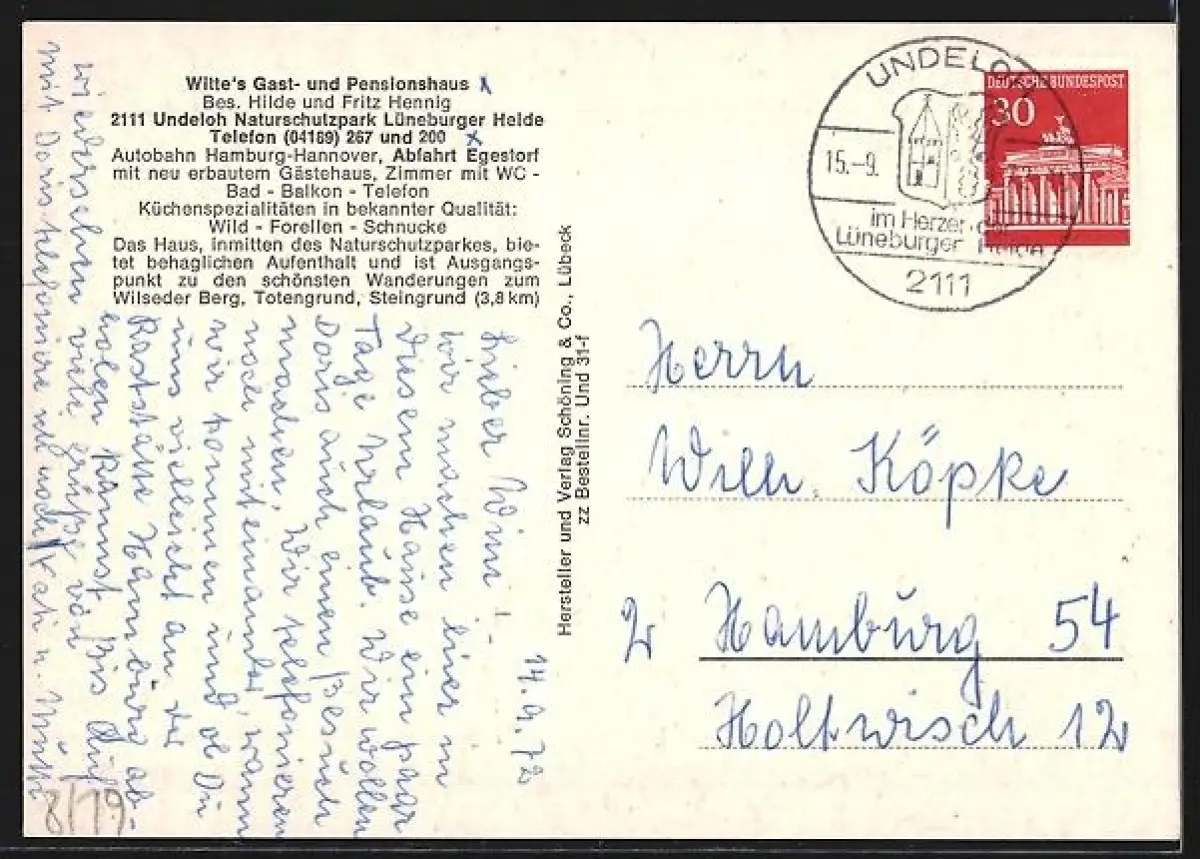 Witte's Gast- und Pensionshaus x
Bes. Hilde und Fritz Hennig
2111 Undeloh Naturschutzpark Lüneburger Heide
Telefon (04189) 267 und 200 x
Autobahn Hamburg-Hannover, Abfahrt Egestorf
mit neu erbautem Gästehaus, Zimmer mit WC -
Bad - Balkon - Telefon
Küchenspezialitäten in bekannter Qualität:
Wild - Forellen - Schnucke
Das Haus, inmitten des Naturschutzparkes, bie-
tet behaglichen Aufenthalt und ist Ausgangs-
punkt zu den schönsten Wanderungen zum
Wilseder Berg, Totengrund, Steingrund (3,8 km)
14.9.72
Lieber Wim!
wir machen hier in
diesem Hause ein paar
Tage Urlaub. Wir wollen
Doris auch einen Besuch
machen. Wir telefonieren
noch miteinander, wann
wir kommen und ob Du
uns vielleicht an der
Raststätte Hamburg ab-
holen kannst. Bis Auf
wiedersehen viele Grüße von
Kati u.
mit Doris telefoniere ich noch
8/19
Hersteller und Verlag Schöning & Co., Lübeck
zz Bestellnr. Und 31-f
UNDELOH
15.-9.
im Herzen der
Lüneburger Heide
2111
DEUTSCHE BUNDESPOST
30
Herrn
Wilh. Köpke
2 Hamburg 54
Holtwisch 12